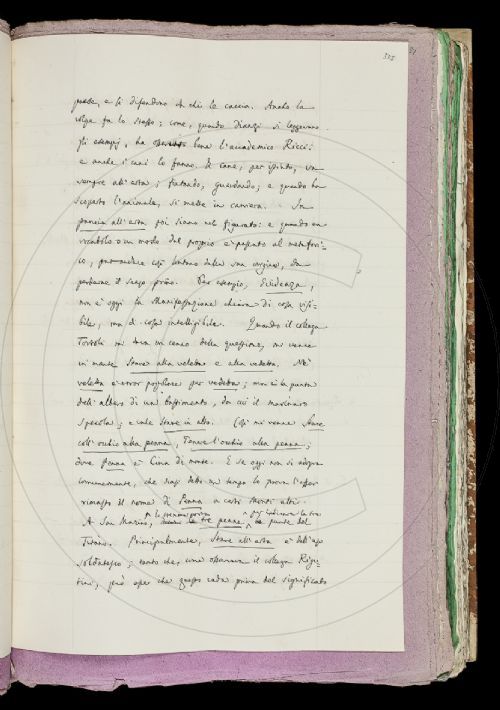 325
prede, e si difendono da chi le caccia. Anche la
volpe fa lo stesso; come, quando dianzi si leggevano
gli esempj, ha osservato bene l'accademico Ricci:
e anche i cani lo fanno. Il cane, per istinto, va
sempre all'erta; fiutando, guardando; e quando ha
scoperto l'animale, si mette in carriera. In
all'erta poi siamo nel figurato: e quando un
vocabolo o un modo dal proprio è passato al metafori-
co, può andare così lontano dalla sua origine, da
perderne il senso primo. Per esempio, Evidenza,
non è oggi la manifestazione chiara di cosa visi-
bile, ma di cosa intelligibile. Quando il collega
Tortoli mi fece un cenno della questione, mi venne
in mente Stare alla veletta e alla vedetta. Nè
veletta è error popolare per vedetta; ma è la punta
dell'albero di un bastimento, da cui il marinaro
specola; e vale Stare in alto. Così mi venne Stare
coll'occhio alla penna, Tenere l'occhio alla penna;
dove Penna è Cima di monte. E se oggi non si adopra
comunemente, che siasi detto un tempo lo prova l'esser
rimasto il nome di Penna a certi monti alti.
A San Marino, le tre penne le punte del
Titano. Principalmente, Stare all'erta è dell'uso
soldatesco; tanto che, come osservava il collega Rigu-
tini, può esser che questo vada prima del significato